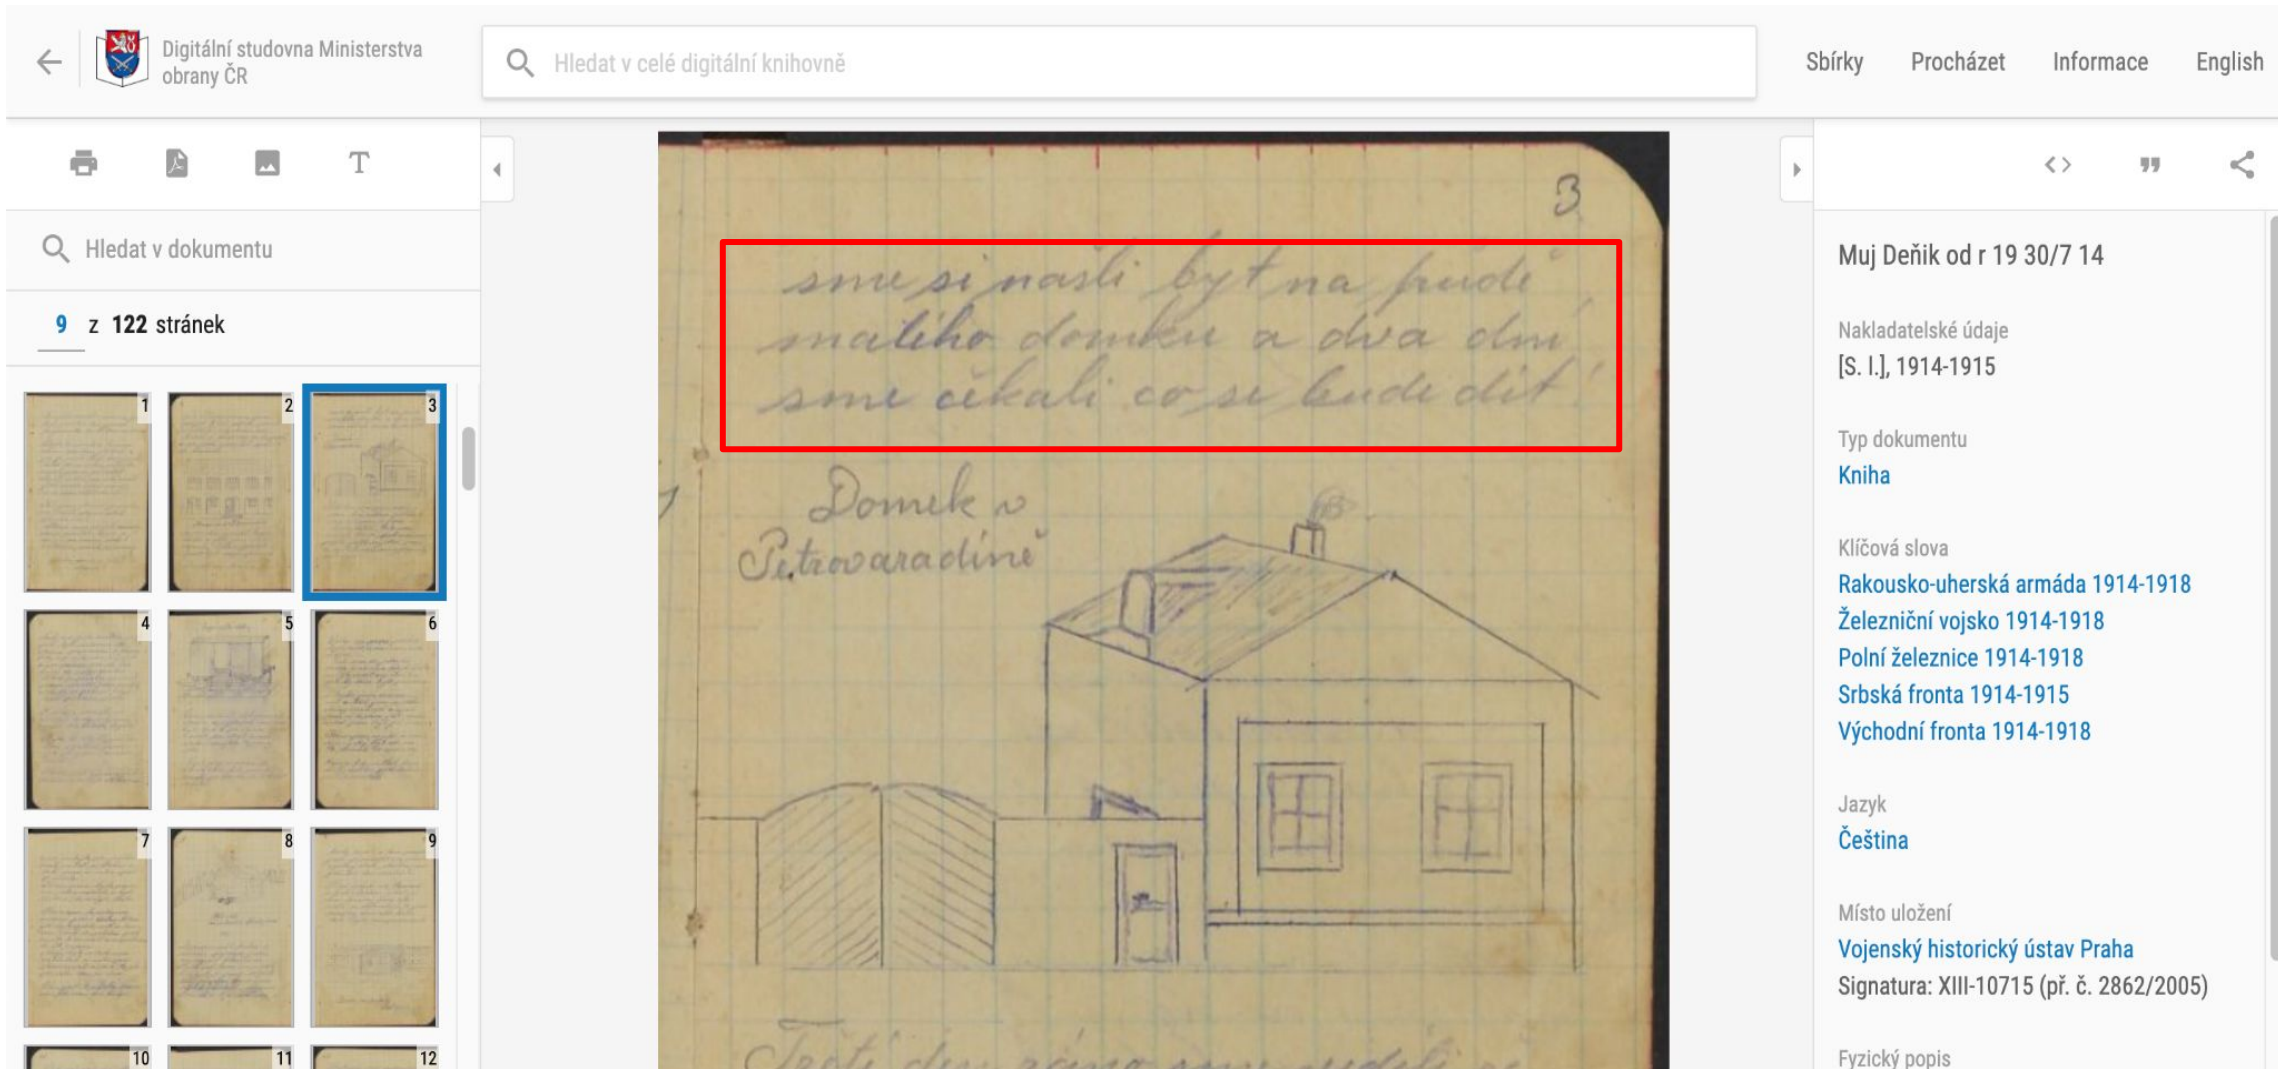 Digitální studovna Ministerstva
obrany ČR
Hledat v celé digitální knihovně
Sbírky Procházet Informace English
T
Hledat v dokumentu
9 z 122 stránek
1 2 3
4 5 6
7 8 9
10 11 12
3
sme si našli byt na pudě
maliho domku a dva dni
sme čekali co se bude dít
Domek v
Petrovaradíně
Třetí den ráno sme
Muj Deňik od r 19 30/7 14
Nakladatelské údaje
[S. l.], 1914-1915
Typ dokumentu
Kniha
Klíčová slova
Rakousko-uherská armáda 1914-1918
Železniční vojsko 1914-1918
Polní železnice 1914-1918
Srbská fronta 1914-1915
Východní fronta 1914-1918
Jazyk
Čeština
Místo uložení
Vojenský historický ústav Praha
Signatura: XIII-10715 (př. č. 2862/2005)
Fyzický popis